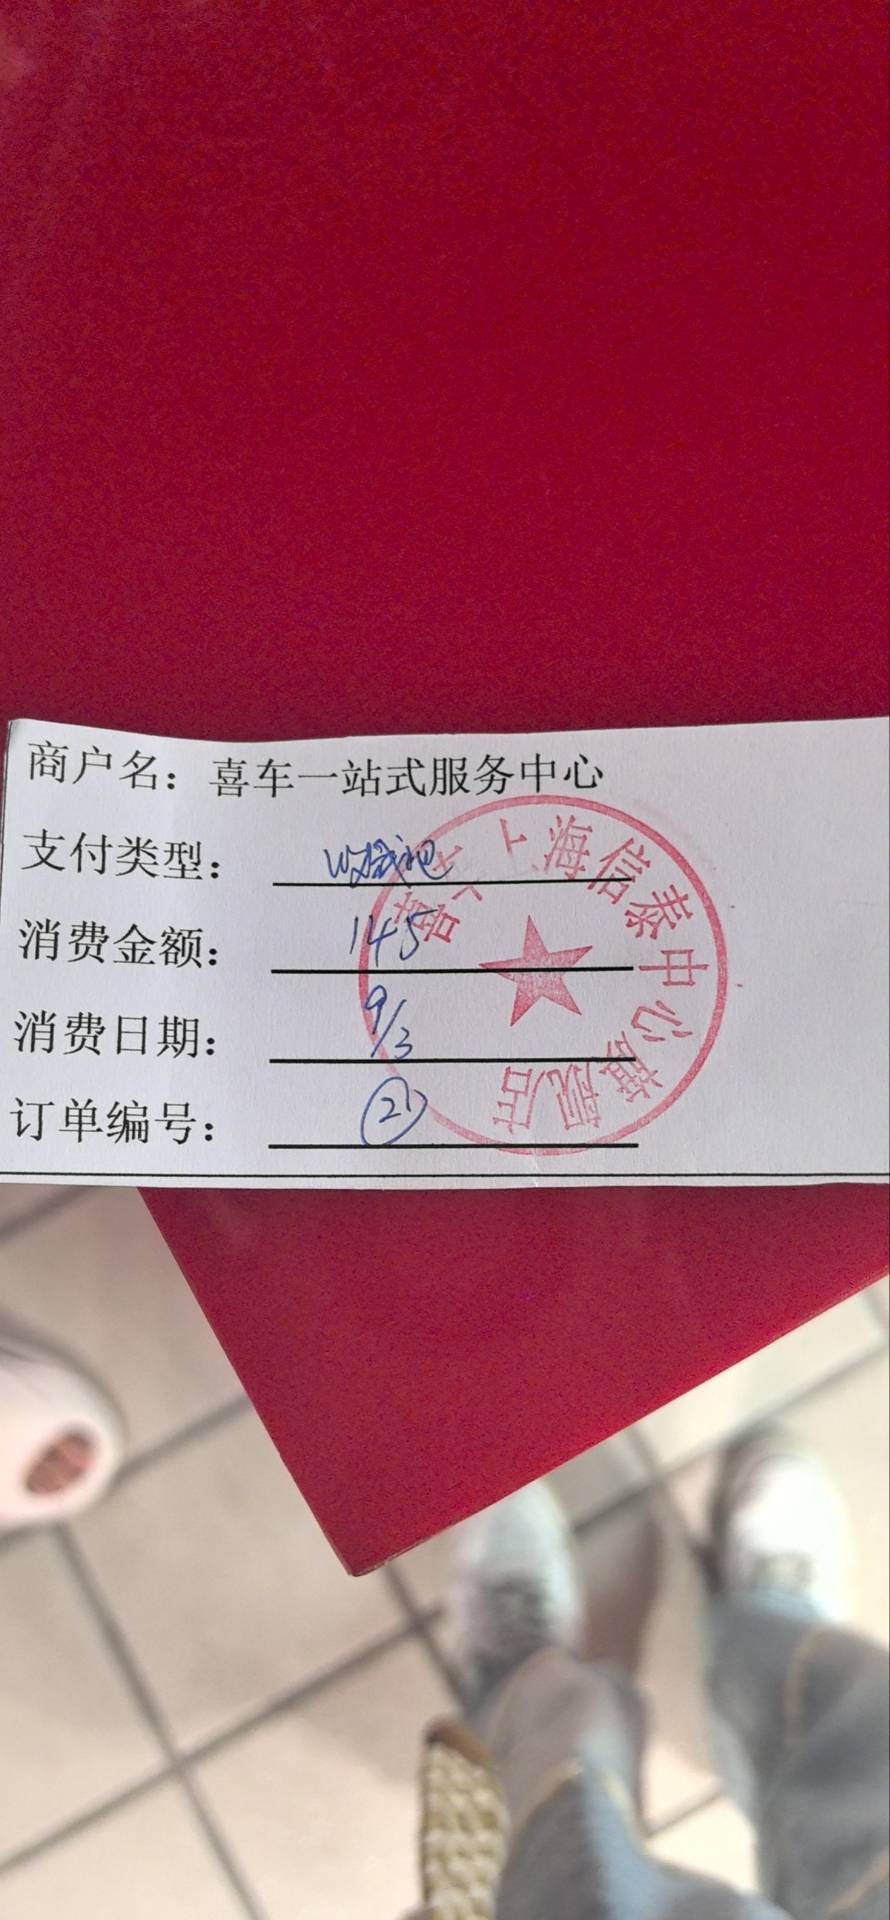 商户名：喜车一站式服务中心
支付类型：收钱吧
消费金额：145
消费日期：9/3
订单编号：21
喜车上海信泰中心旗舰店